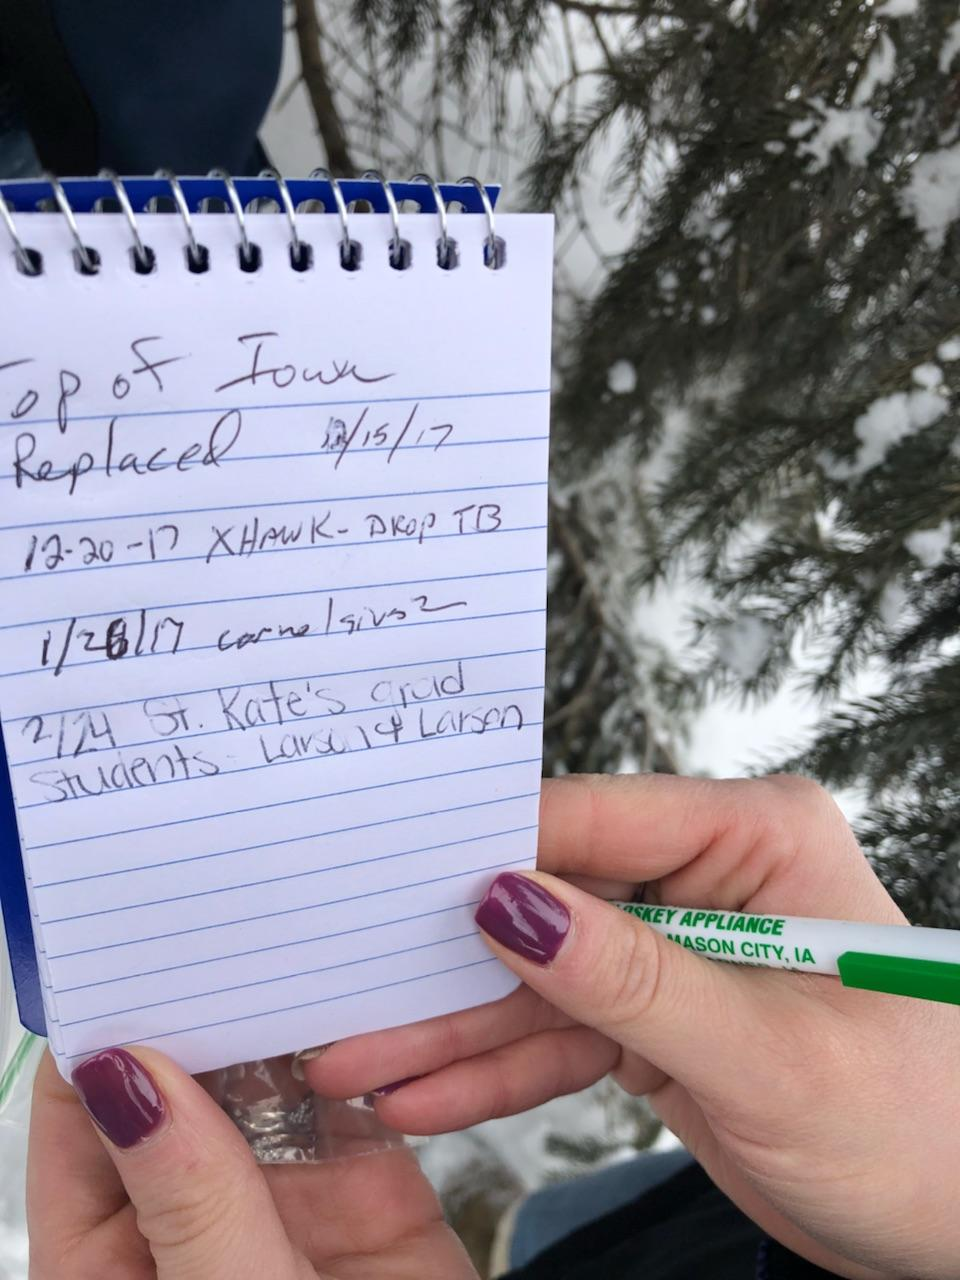 Top of Iowa
Replaced 12/15/17
12-20-17 XHAWK- DROP TB
1/28/17 cornelsivs2
2/24 St. Kate's grad
students- Larson & Larson
OSKEY APPLIANCE
MASON CITY, IA